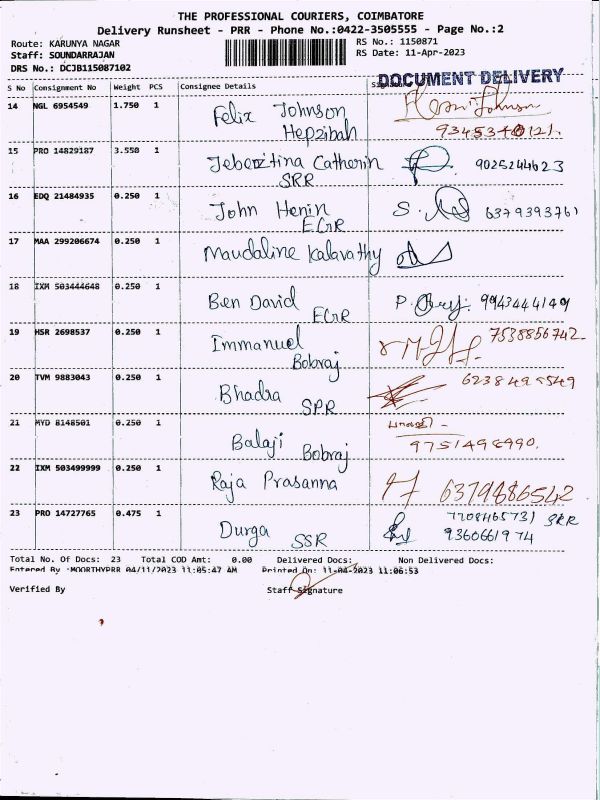 THE PROFESSIONAL COURIERS, COIMBATORE
Delivery Runsheet - PRR - Phone No.:0422-3505555 - Page No.:2
Route: KARUNYA NAGAR RS No.: 1150871
Staff: SOUNDARRAJAN RS Date: 11-Apr-2023
DRS No.: DCJB115087102
DOCUMENT DELIVERY
S No Consignment No Weight PCS Consignee Details
14 NGL 6954549 1.750 1 Felix Johnson
Hepzibah
15 PRO 14829187 3.550 1 Catherin 9025244623
SRR
16 EDQ 21484935 0.250 1 John Henin 6379393761
EGR
17 MAA 299206674 0.250 1 Maudaline Kalavathy
18 IXM 503444648 0.250 1 Ben David 9943444149
EGR
19 HSR 2698537 0.250 1 Immanuel 7538856742
Bobraj
20 TVM 9883043 0.250 1 Bhadra
SPR
21 MYD 8148501 0.250 1 Balaji
Bobraj 9751498990.
22 IXM 503499999 0.250 1 Raja Prasanna 6379886542
23 PRO 14727765 0.475 1 Durga SRR
SSR 9360661974
Total No. Of Docs: 23 Total COD Amt: 0.00 Delivered Docs: Non Delivered Docs:
Entered By :MOORTHYPRR 04/11/2023 11:05:47 AM Printed On: 11-04-2023 11:06:53
Verified By Staff Signature